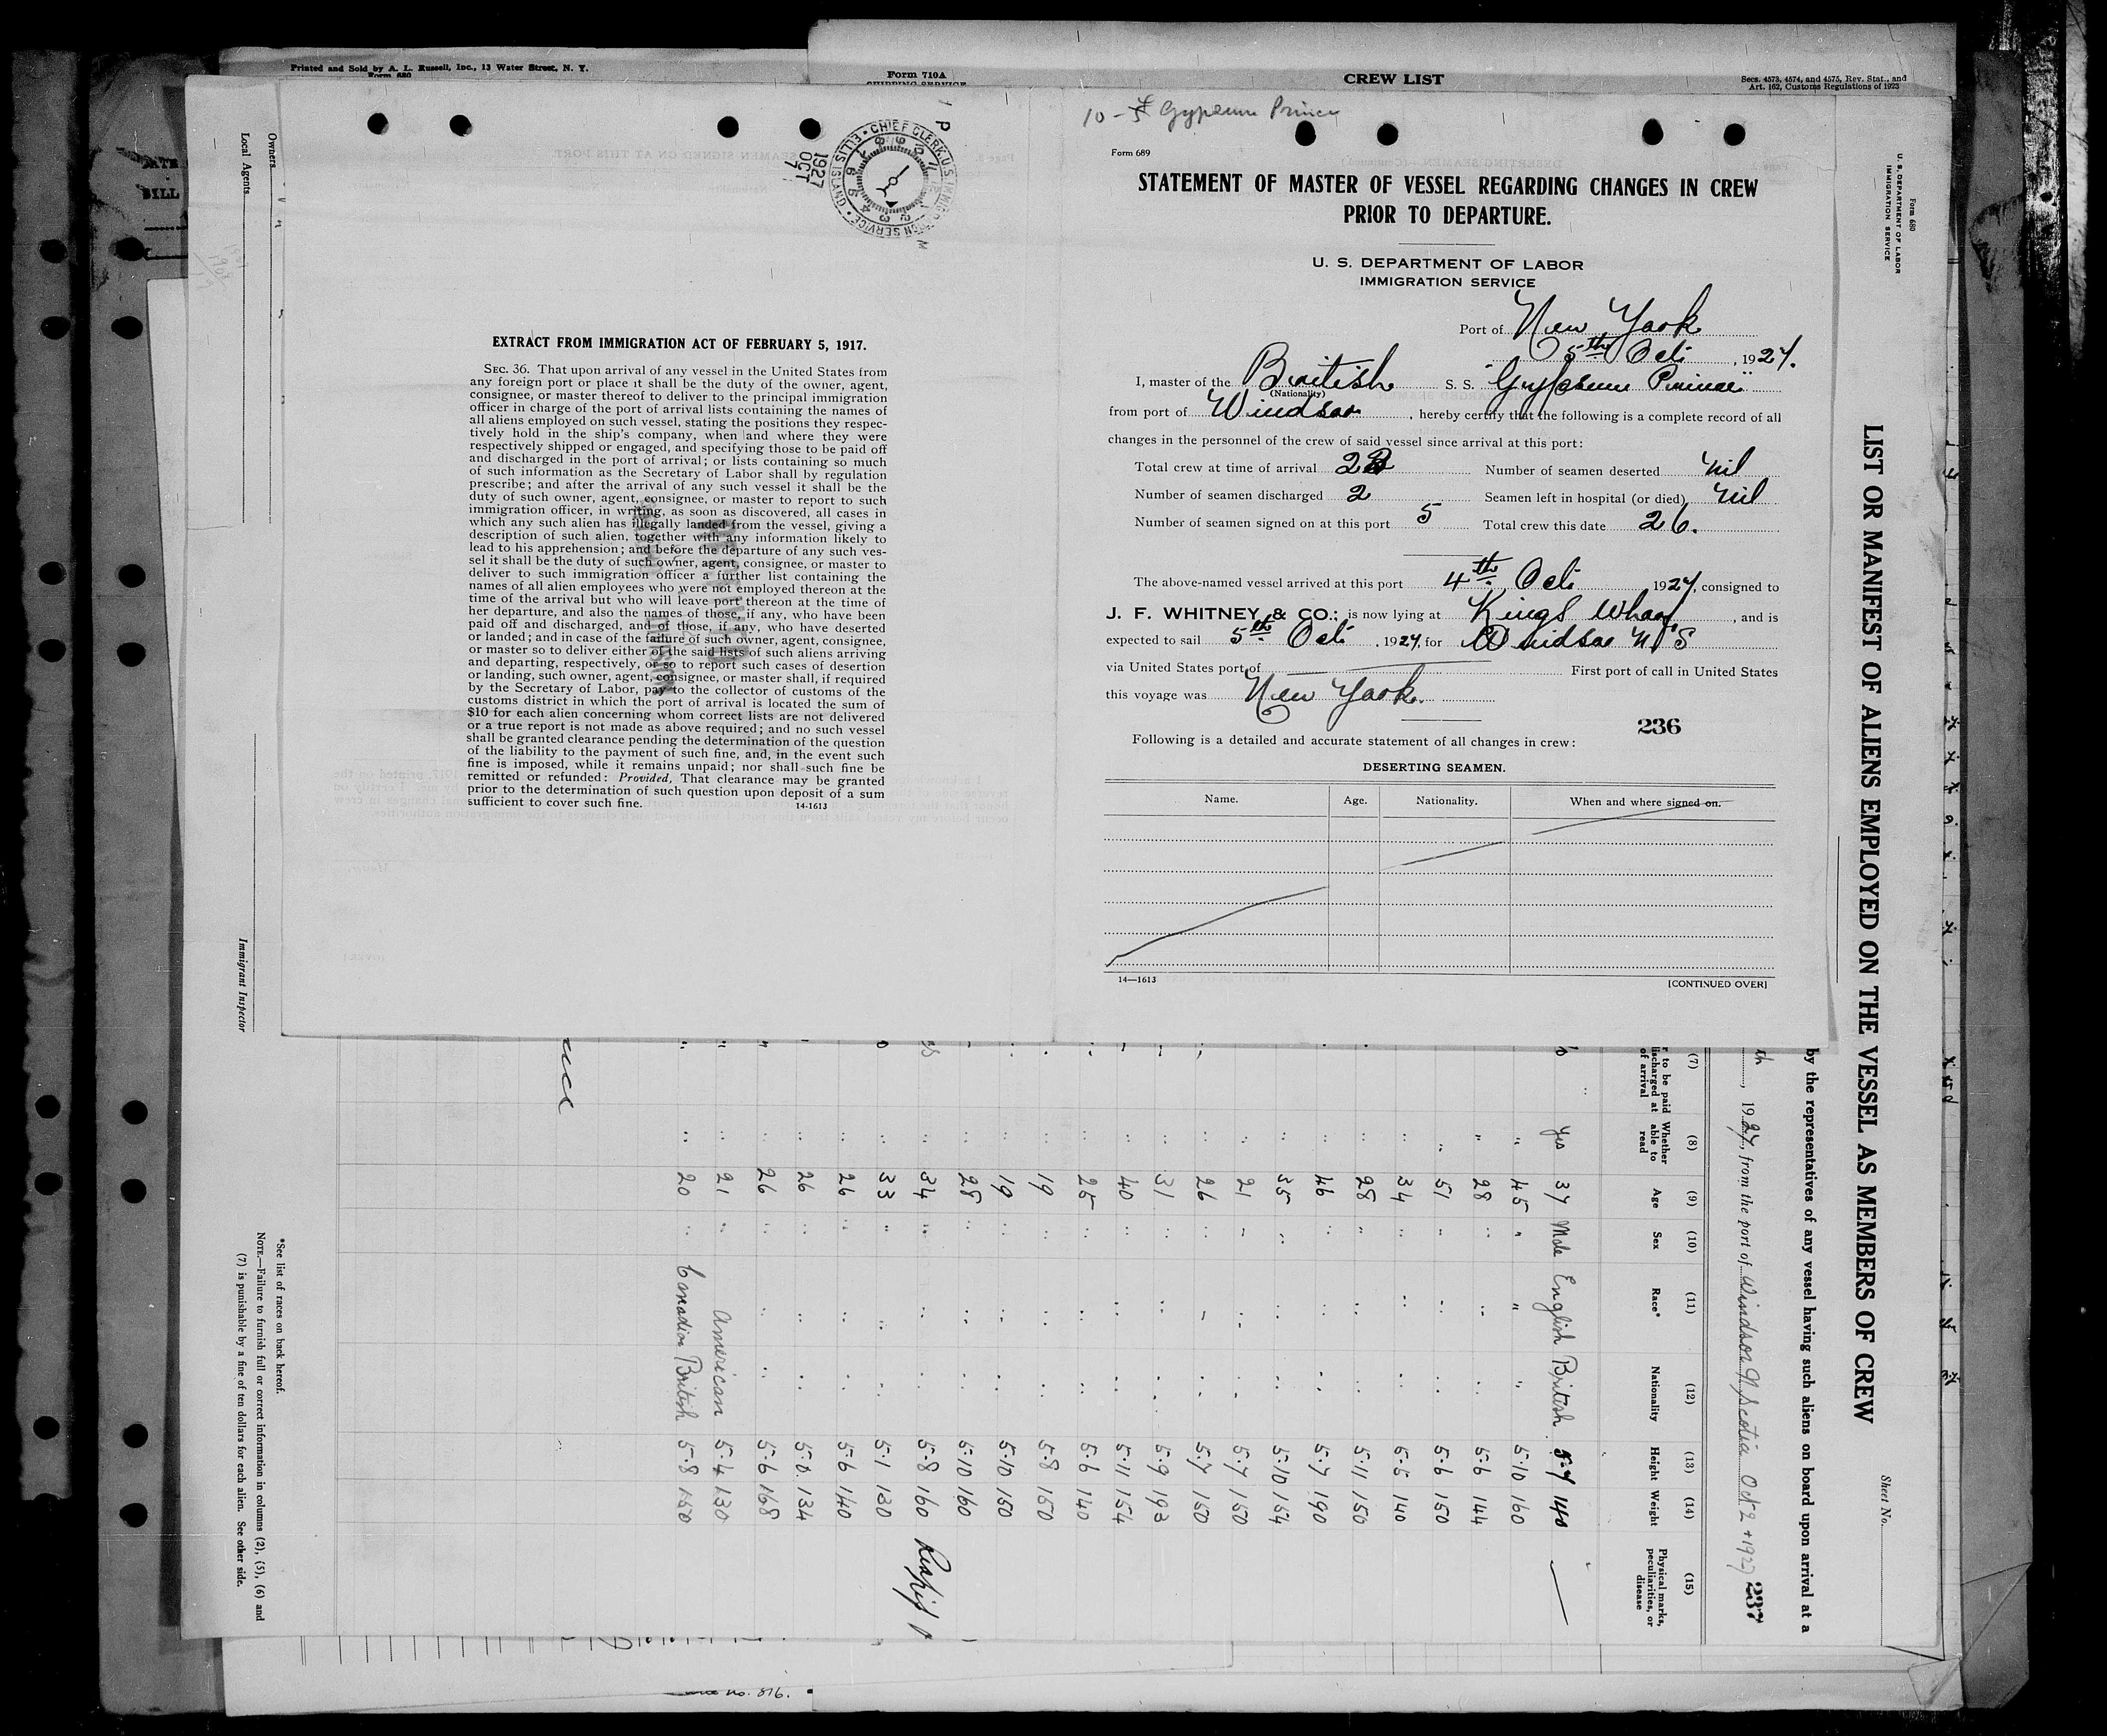 Printed and Sold by A. L. Russell, Inc., 13 Water Street, N. Y.
Form 680
Form 710A
SHIPPING SERVICE
CREW LIST
Secs. 4573, 4574, and 4575, Rev. Stat., and
Art. 162, Customs Regulations of 1923
CHIEF CLERK U.S. IMMIGRATION SERVICE ELLIS ISLAND
1927
OCT
7
P
M
EXTRACT FROM IMMIGRATION ACT OF FEBRUARY 5, 1917.
SEC. 36. That upon arrival of any vessel in the United States from
any foreign port or place it shall be the duty of the owner, agent,
consignee, or master thereof to deliver to the principal immigration
officer in charge of the port of arrival lists containing the names of
all aliens employed on such vessel, stating the positions they respec-
tively hold in the ship's company, when and where they were
respectively shipped or engaged, and specifying those to be paid off
and discharged in the port of arrival; or lists containing so much
of such information as the Secretary of Labor shall by regulation
prescribe; and after the arrival of any such vessel it shall be the
duty of such owner, agent, consignee, or master to report to such
immigration officer, in writing, as soon as discovered, all cases in
which any such alien has illegally landed from the vessel, giving a
description of such alien, together with any information likely to
lead to his apprehension; and before the departure of any such ves-
sel it shall be the duty of such owner, agent, consignee, or master to
deliver to such immigration officer a further list containing the
names of all alien employees who were not employed thereon at the
time of the arrival but who will leave port thereon at the time of
her departure, and also the names of those, if any, who have been
paid off and discharged, and of those, if any, who have deserted
or landed; and in case of the failure of such owner, agent, consignee,
or master so to deliver either of the said lists of such aliens arriving
and departing, respectively, or so to report such cases of desertion
or landing, such owner, agent, consignee, or master shall, if required
by the Secretary of Labor, pay to the collector of customs of the
customs district in which the port of arrival is located the sum of
$10 for each alien concerning whom correct lists are not delivered
or a true report is not made as above required; and no such vessel
shall be granted clearance pending the determination of the question
of the liability to the payment of such fine, and, in the event such
fine is imposed, while it remains unpaid; nor shall such fine be
remitted or refunded: Provided, That clearance may be granted
prior to the determination of such question upon deposit of a sum
sufficient to cover such fine. 14-1613
10 - 5 Gypsum Prince
Form 689
STATEMENT OF MASTER OF VESSEL REGARDING CHANGES IN CREW
PRIOR TO DEPARTURE.
U. S. DEPARTMENT OF LABOR
IMMIGRATION SERVICE
Port of New York
5th Oct , 1927.
I, master of the British S. S. "Gypsum Prince"
(Nationality)
from port of Windsor , hereby certify that the following is a complete record of all
changes in the personnel of the crew of said vessel since arrival at this port:
Total crew at time of arrival 23 Number of seamen deserted nil
Number of seamen discharged 2 Seamen left in hospital (or died) nil
Number of seamen signed on at this port 5 Total crew this date 26.
The above-named vessel arrived at this port 4th Oct 1927, consigned to
J. F. WHITNEY & CO.; is now lying at Kings Wharf , and is
expected to sail 5th Oct , 1927, for Windsor N S
via United States port of First port of call in United States
this voyage was New York.
236
Following is a detailed and accurate statement of all changes in crew:
DESERTING SEAMEN.
Name. Age. Nationality. When and where signed on.
14—1613 [CONTINUED OVER]
Form 680
U. S. DEPARTMENT OF LABOR
IMMIGRATION SERVICE
Sheet No.
LIST OR MANIFEST OF ALIENS EMPLOYED ON THE VESSEL AS MEMBERS OF CREW
by the representatives of any vessel having such aliens on board upon arrival at a
th , 1927, from the port of Windsor N Scotia Oct 2 1927 237
(7) (8) (9) (10) (11) (12) (13) (14) (15)
r to be paid
discharged at
of arrival
Whether
able to
read
Age
Sex
Race*
Nationality
Height
Weight
Physical marks,
peculiarities, or
disease
Yes 37 Male English British 5-7 140
" 45 " " " 5-10 160
" 28 " " " 5-6 144
" 51 " " " 5-6 150
" 34 " " " 5-5 140
" 28 " " " 5-11 150
" 46 " " " 5-7 190
" 35 " " " 5-10 154
" 21 " " " 5-7 150
" 26 " " " 5-7 150
" 31 " " " 5-9 193
" 40 " " " 5-11 154
" 25 " " " 5-6 140
" 19 " " " 5-8 150
" 19 " " " 5-10 150
" 28 " " " 5-10 160
" 34 " " " 5-8 160
" 33 " " " 5-1 130
" 26 " " " 5-6 140
" 26 " " " 5-8 134
" 26 " " " 5-6 168
" 21 " American 5-4 130
" 20 " Canadian British 5-8 150
*See list of races on back hereof.
NOTE.—Failure to furnish full or correct information in columns (2), (5), (6) and
(7) is punishable by a fine of ten dollars for each alien. See other side.
Owners
Local Agents
Immigrant Inspector
BILL
no. 816.